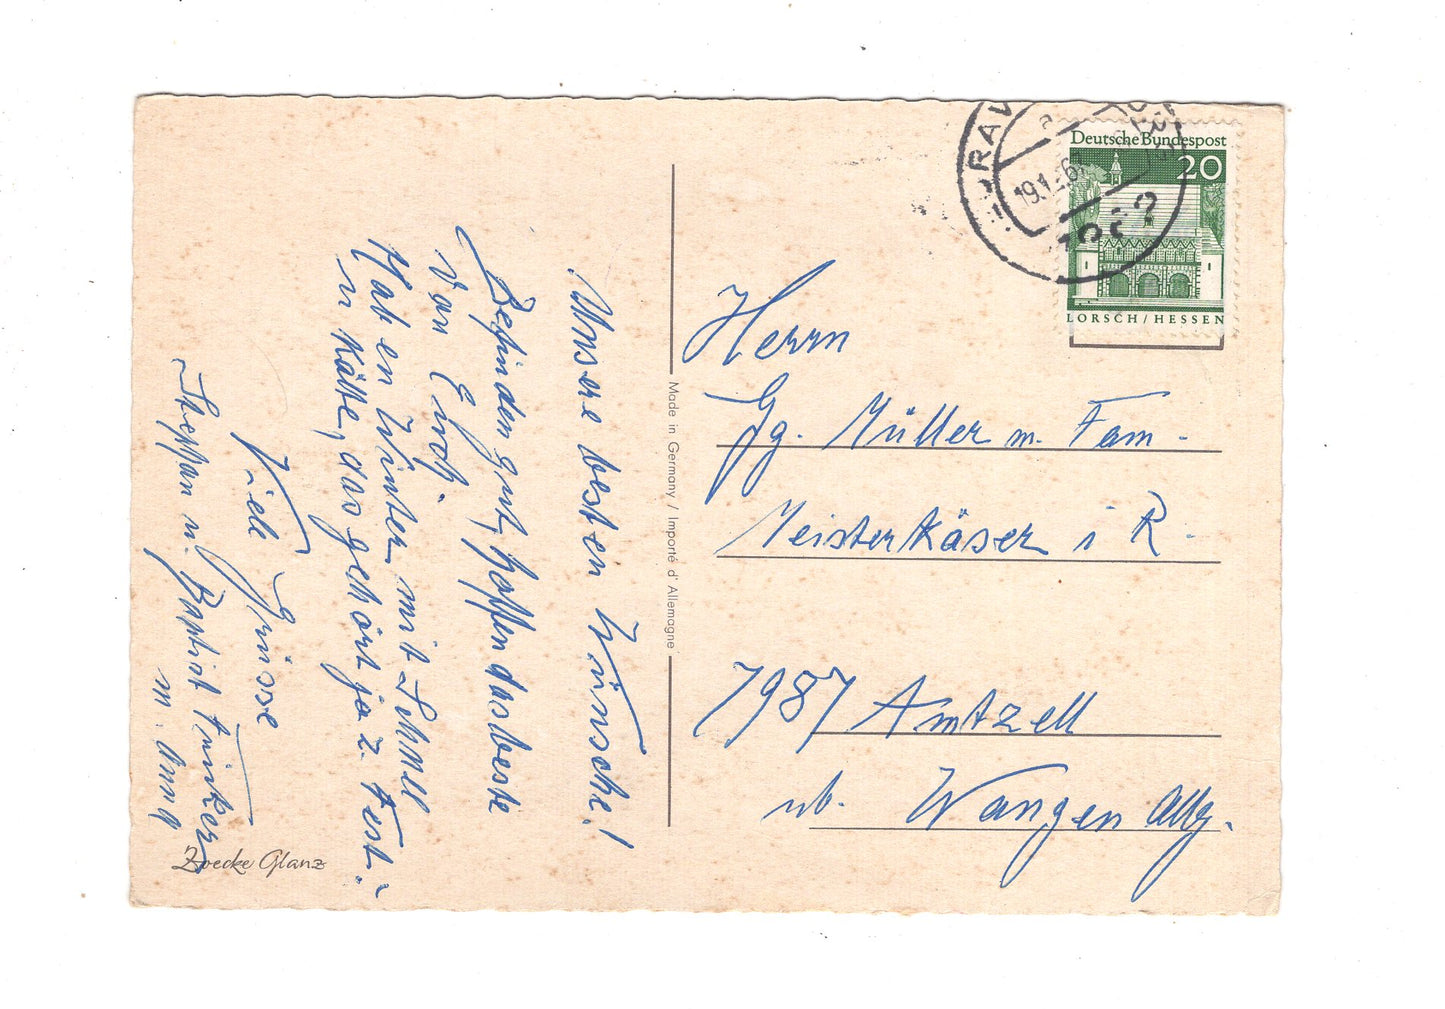 Unsere besten Wünsche!
Befinden gut, hoffen das beste
von Euch.
Haben Winter mit Schnee
u Kälte, das gehört ja z. Fest.
Viele Grüsse
Steffan u. Baptist
m. Anna
Zoecke Glanz
Made in Germany / Importé d'Allemagne
Deutsche Bundespost
20
LORSCH / HESSEN
19.1
Herrn
Gg. Müller m. Fam.
Meisterkäser i R.
7987 Amtzell
nb. Wangen Allg.